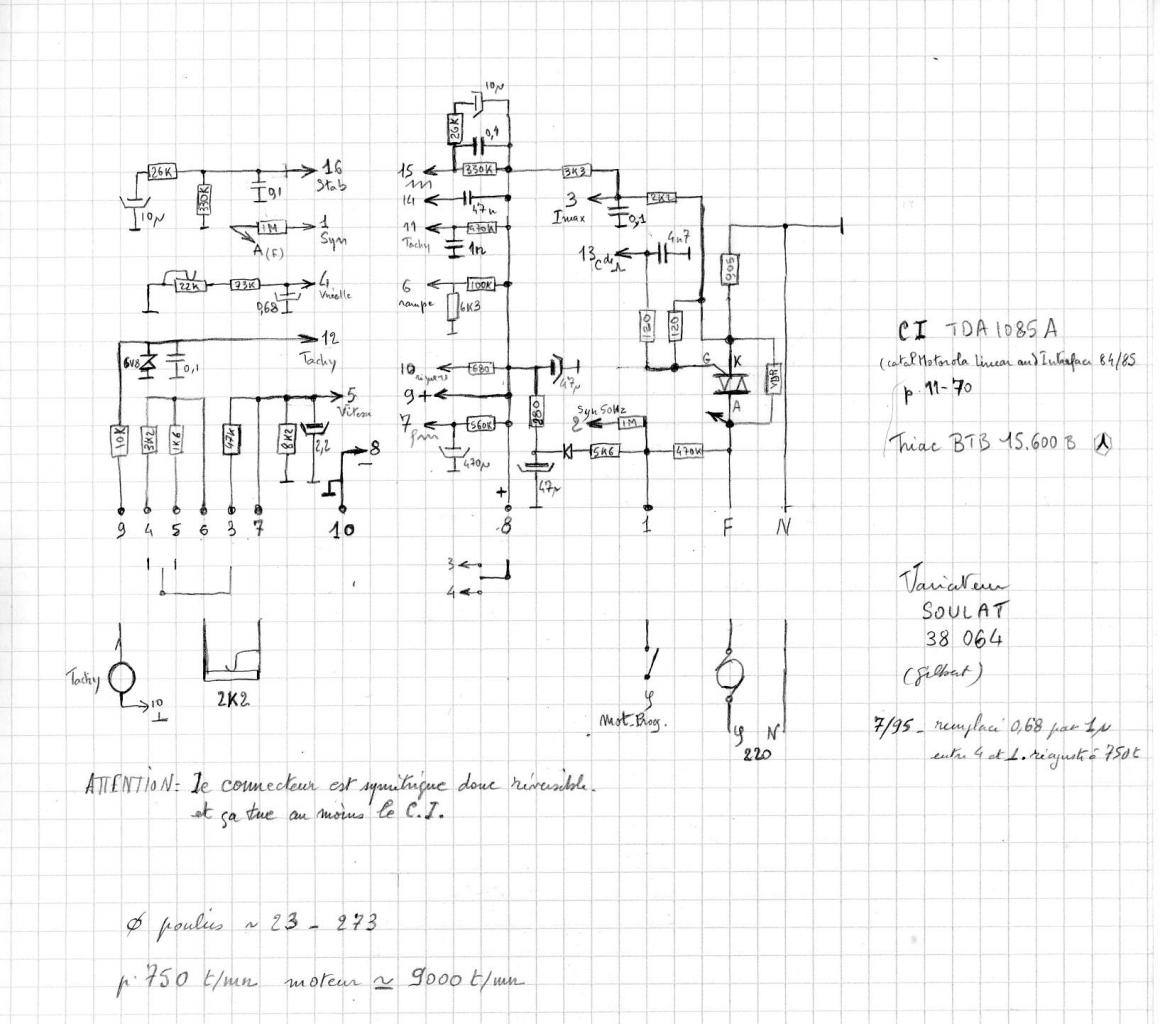 10µ
26K
0,1
26K
16
Stab
330K
0,1
10µ
1M
1
Syn
A (F)
22K
73K
4
0,68
12
Tachy
6V8
0,1
5
10K
3K2
1K6
47K
8K2
2,2
8
9 4 5 6 3 7 10
15
330K
14
47n
11
Tachy
470K
1n
6
rampe
100K
6K3
10
680
47µ
9 +
7
560K
470µ
280
2
Syn 50Hz
1M
5K6
470K
47µ
+
8
1
F
N
3K3
3
Imax
2K7
0,1
13
4n7
120
120
G
K
A
VDR
3
4
Tachy
10
2K2
φ
Mot. Prog.
φ
N
220
CI TDA 1085 A
(catal Motorola Linear and Interface 84/85
p. 11-70
Triac BTB 15.600 B
Variateur
SOULAT
38 064
(Gilbert)
7/95 - remplacé 0,68 par 1µ
entre 4 et ⊥. réajusté à 750t
ATTENTION: le connecteur est symétrique donc réversible.
et ça tue au moins le C.I.
Ø poulies ~ 23 - 273
p. 750 t/mn moteur ≃ 9000 t/mn